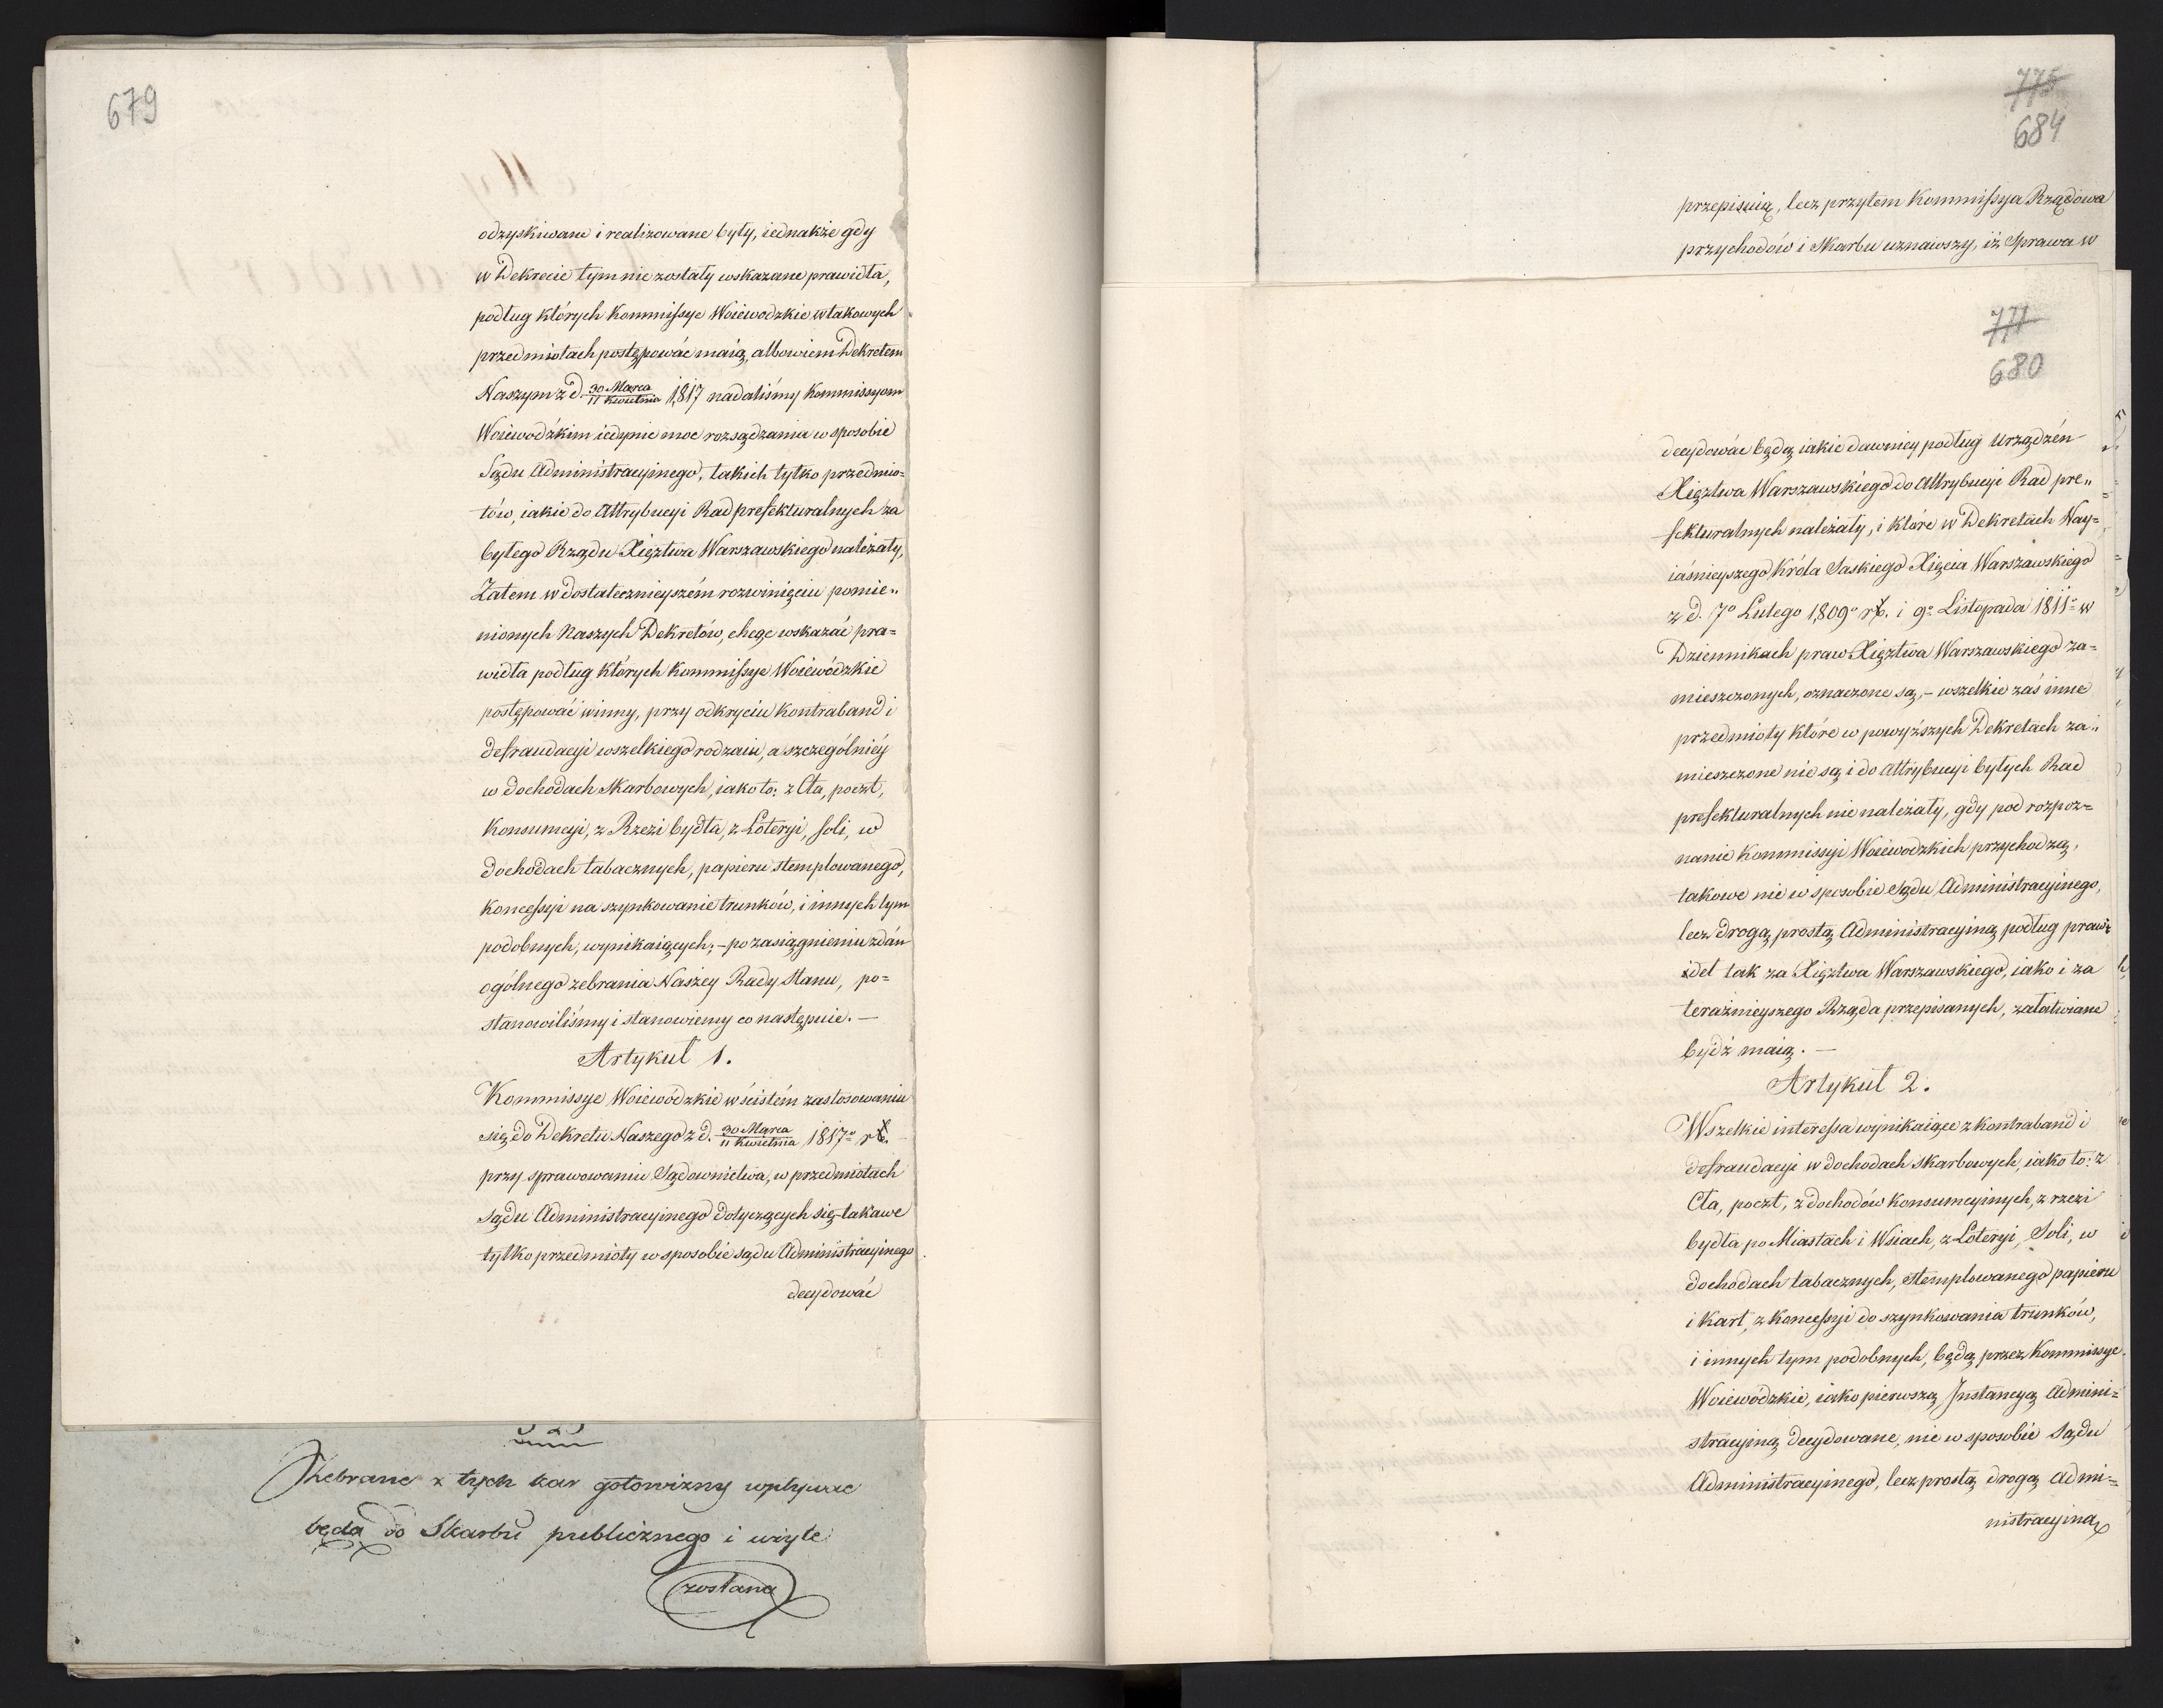 679
odzyskiwane i realizowane były, iednakże gdy
w Dekrecie tym nie zostały wskazane prawidła,
podług których Kommissye Woiewodzkie w takowych
przedmiotach postępować maią, albowiem Dekretem
Naszym z d. 30 Marca / 11 Kwietnia 1817 nadaliśmy Kommissyom
Woiewodzkim iedynie moc rozsądzania w sposobie
Sądu Administracyinego, takich tylko przedmio=
tów, iakie do Attrybucyi Rad prefekturalnych za
byłego Rządu Xięztwa Warszawskiego należały,
Zatem w dostatecznieyszém rozwinięciu pomie„
nionych Naszych Dekretów, chcąc wskazać pra=
widła podług których Kommissye Woiewódzkie
postępować winny, przy odkryciu Kontraband i
defraudacyi wszelkiego rodzaiu, a szczególniéy
w dochodach Skarbowych, iako to: z Cła, poczt,
Konsumcyi, z Rzezi bydła, z Loteryi, soli, w
dochodach tabacznych, papieru stemplowanego,
koncessyi na szynkowanie trunków, i innych tym
podobnych, wynikaiących; – po zasiągnieniu zdán
ogólnego zebrania Naszey Rady Stanu, po=
stanowiliśmy i stanowiemy co następuie. —
Artykuł 1.
Kommissye Woiewódzkie w ścisłém zastosowaniu
się do Dekretu Naszego z d. 30 Marca / 11 Kwietnia 1817º r.
przy sprawowaniu Sądownictwa, w przedmiotach
Sądu Administracyinego dotyczących się takowe
tylko przedmioty w sposobie sądu Administracyinego
decydować
Zebrane z tych kar gotowizny wpływac
będą do Skarbu publicznego i użyte
zostaną
775
684
przepisuią, lecz przytem Kommissya Rządowa
przychodów i Skarbu uznawszy, iż Sprawa w
771
680
decydować będą iakie dawniey podług Urządzén
Xięztwa Warszawskiego do Attrybucyi Rad pre„
fekturalnych należały, i które w Dekretach Nay=
iaśnieyszego Króla Saskiego Xięcia Warszawskiego
z d. 7º Lutego 1809º r. i 9º Listopada 1811º w
Dziennikach praw Xięztwa Warszawskiego za=
mieszczonych, oznaczone są, – wszelkie zaś inne
przedmioty które w powyższych Dekretach za„
mieszczone nie są i do Attrybucyi byłych Rad
prefekturalnych nie należały, gdy pod rozpoz=
nanie Kommissyi Woiewodzkich przychodzą,
takowe nie w sposobie Sądu Administracyinego,
lecz drogą prostą Administracyiną podług praw=
ideł tak za Xięztwa Warszawskiego, iako i za
teraźnieyszego Rządu przepisanych, załatwiane
bydź maią. —
Artykuł 2.
Wszelkie interessa wynikaiące z kontraband i
defraudacyi w dochodach Skarbowych, iako to: z
Cła, poczt, z dochodów konsumcyinych, z rzezi
bydła po Miastach i Wsiach, z Loteryi, Soli, w
dochodach tabacznych, stemplowanego papieru
i kart, z koncessyi do szynkowania trunków,
i innych tym podobnych, będą przez Kommissye
Woiewódzkie, iako pierwszą Instancyą Admini=
stracyiną decydowane, nie w sposobie Sądu
Administracyinego, lecz prostą drogą Admi=
nistracyiną